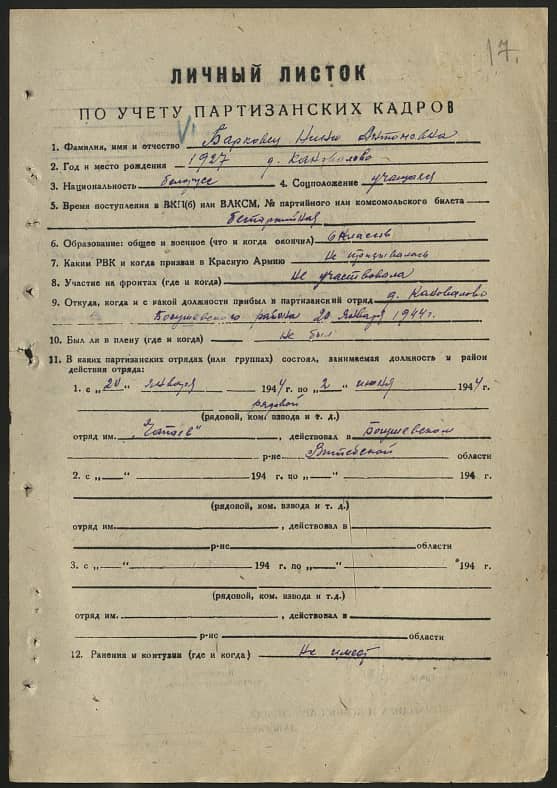 17.
ЛИЧНЫЙ ЛИСТОК
ПО УЧЕТУ ПАРТИЗАНСКИХ КАДРОВ
1. Фамилия, имя и отчество Барковец Нина Антоновна
2. Год и место рождения 1927 д. Кановалово
3. Национальность 4. Соцположение учащаяся
5. Время поступления в ВКП(б) или ВЛКСМ, № партийного или комсомольского билета
беспартийная
6. Образование: общее и военное (что и когда окончил) 6 класов
7. Каким РВК и когда призван в Красную Армию не призывалась
8. Участие на фронтах (где и когда) не участвовала
9. Откуда, когда и с какой должности прибыл в партизанский отряд д. Кановалово
Богушевского района 20 января 1944 г.
10. Был ли в плену (где и когда) не был
11. В каких партизанских отрядах (или группах) состоял, занимаемая должность и район
действия отряда:
1. с „20“ января 1944 г. по „2“ июня 1944 г.
рядовой
(рядовой, ком. взвода и т. д.)
отряд им. „Чапаев“, действовал в Богушевском
р-не Витебской области
2. с „—“ 194 г. по „—“ 194 г.
(рядовой, ком. взвода и т. д.)
отряд им. , действовал в
р-не области
3. с „—“ 194 г. по „—“ 194 г.
(рядовой, ком. взвода и т.д.)
отряд им. , действовал в
р-не области
12. Ранения и контузии (где и когда) Не имеет